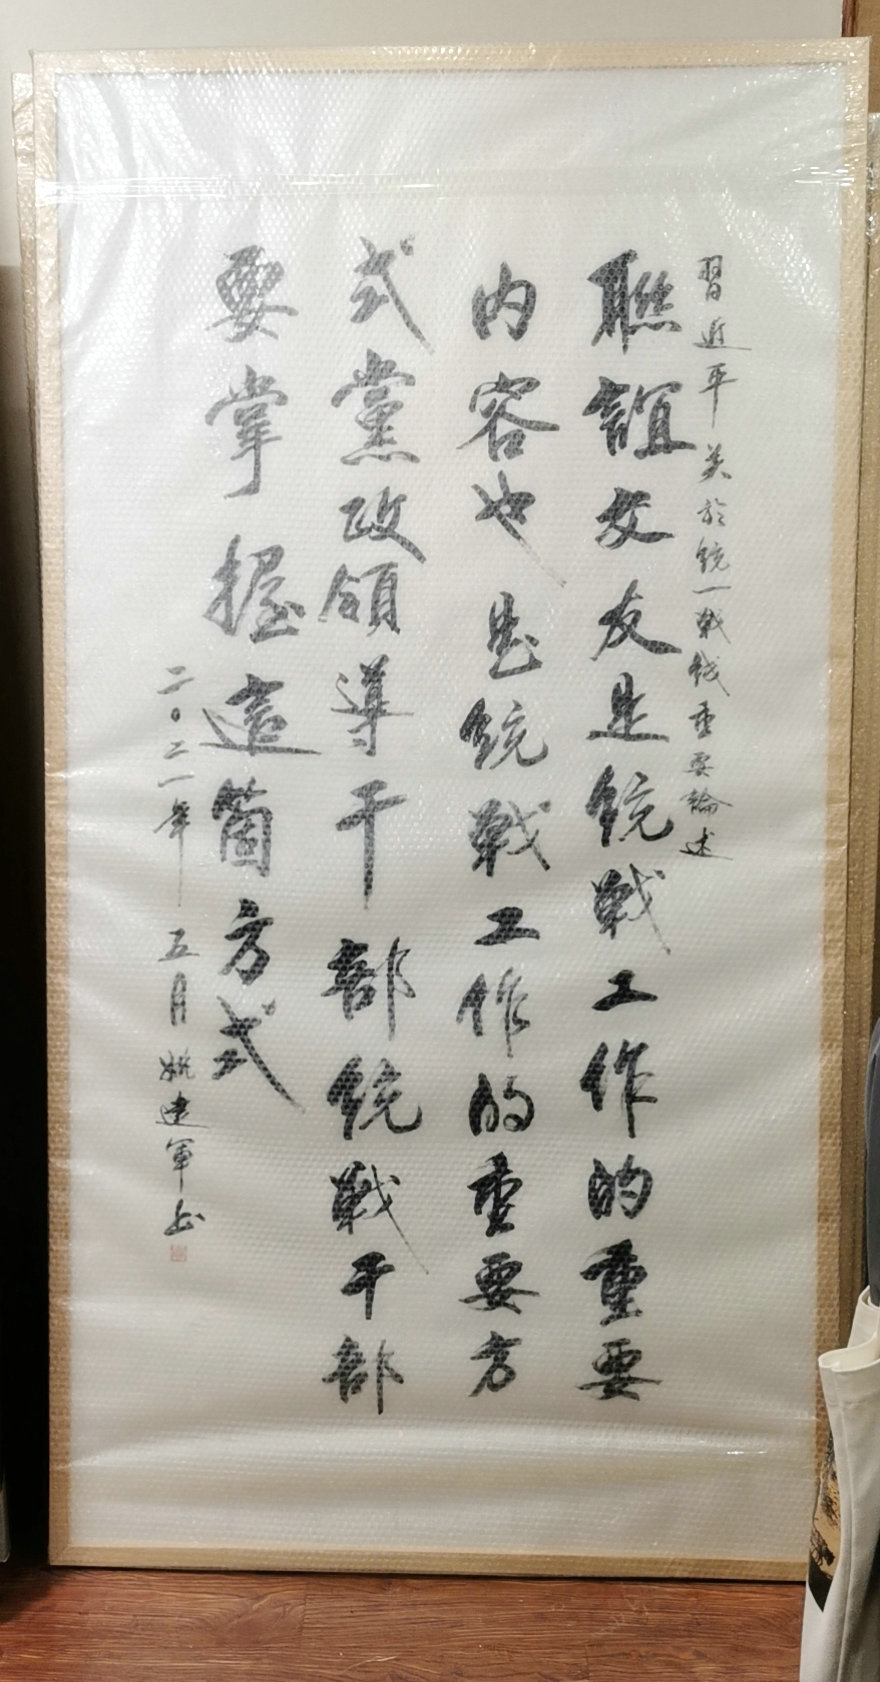 習近平关於统一戰线重要論述
聯誼交友是统戰工作的重要
内容也是统戰工作的重要方
式黨政領導干部统戰干部
要掌握這箇方式
二〇二一年五月姚建軍书